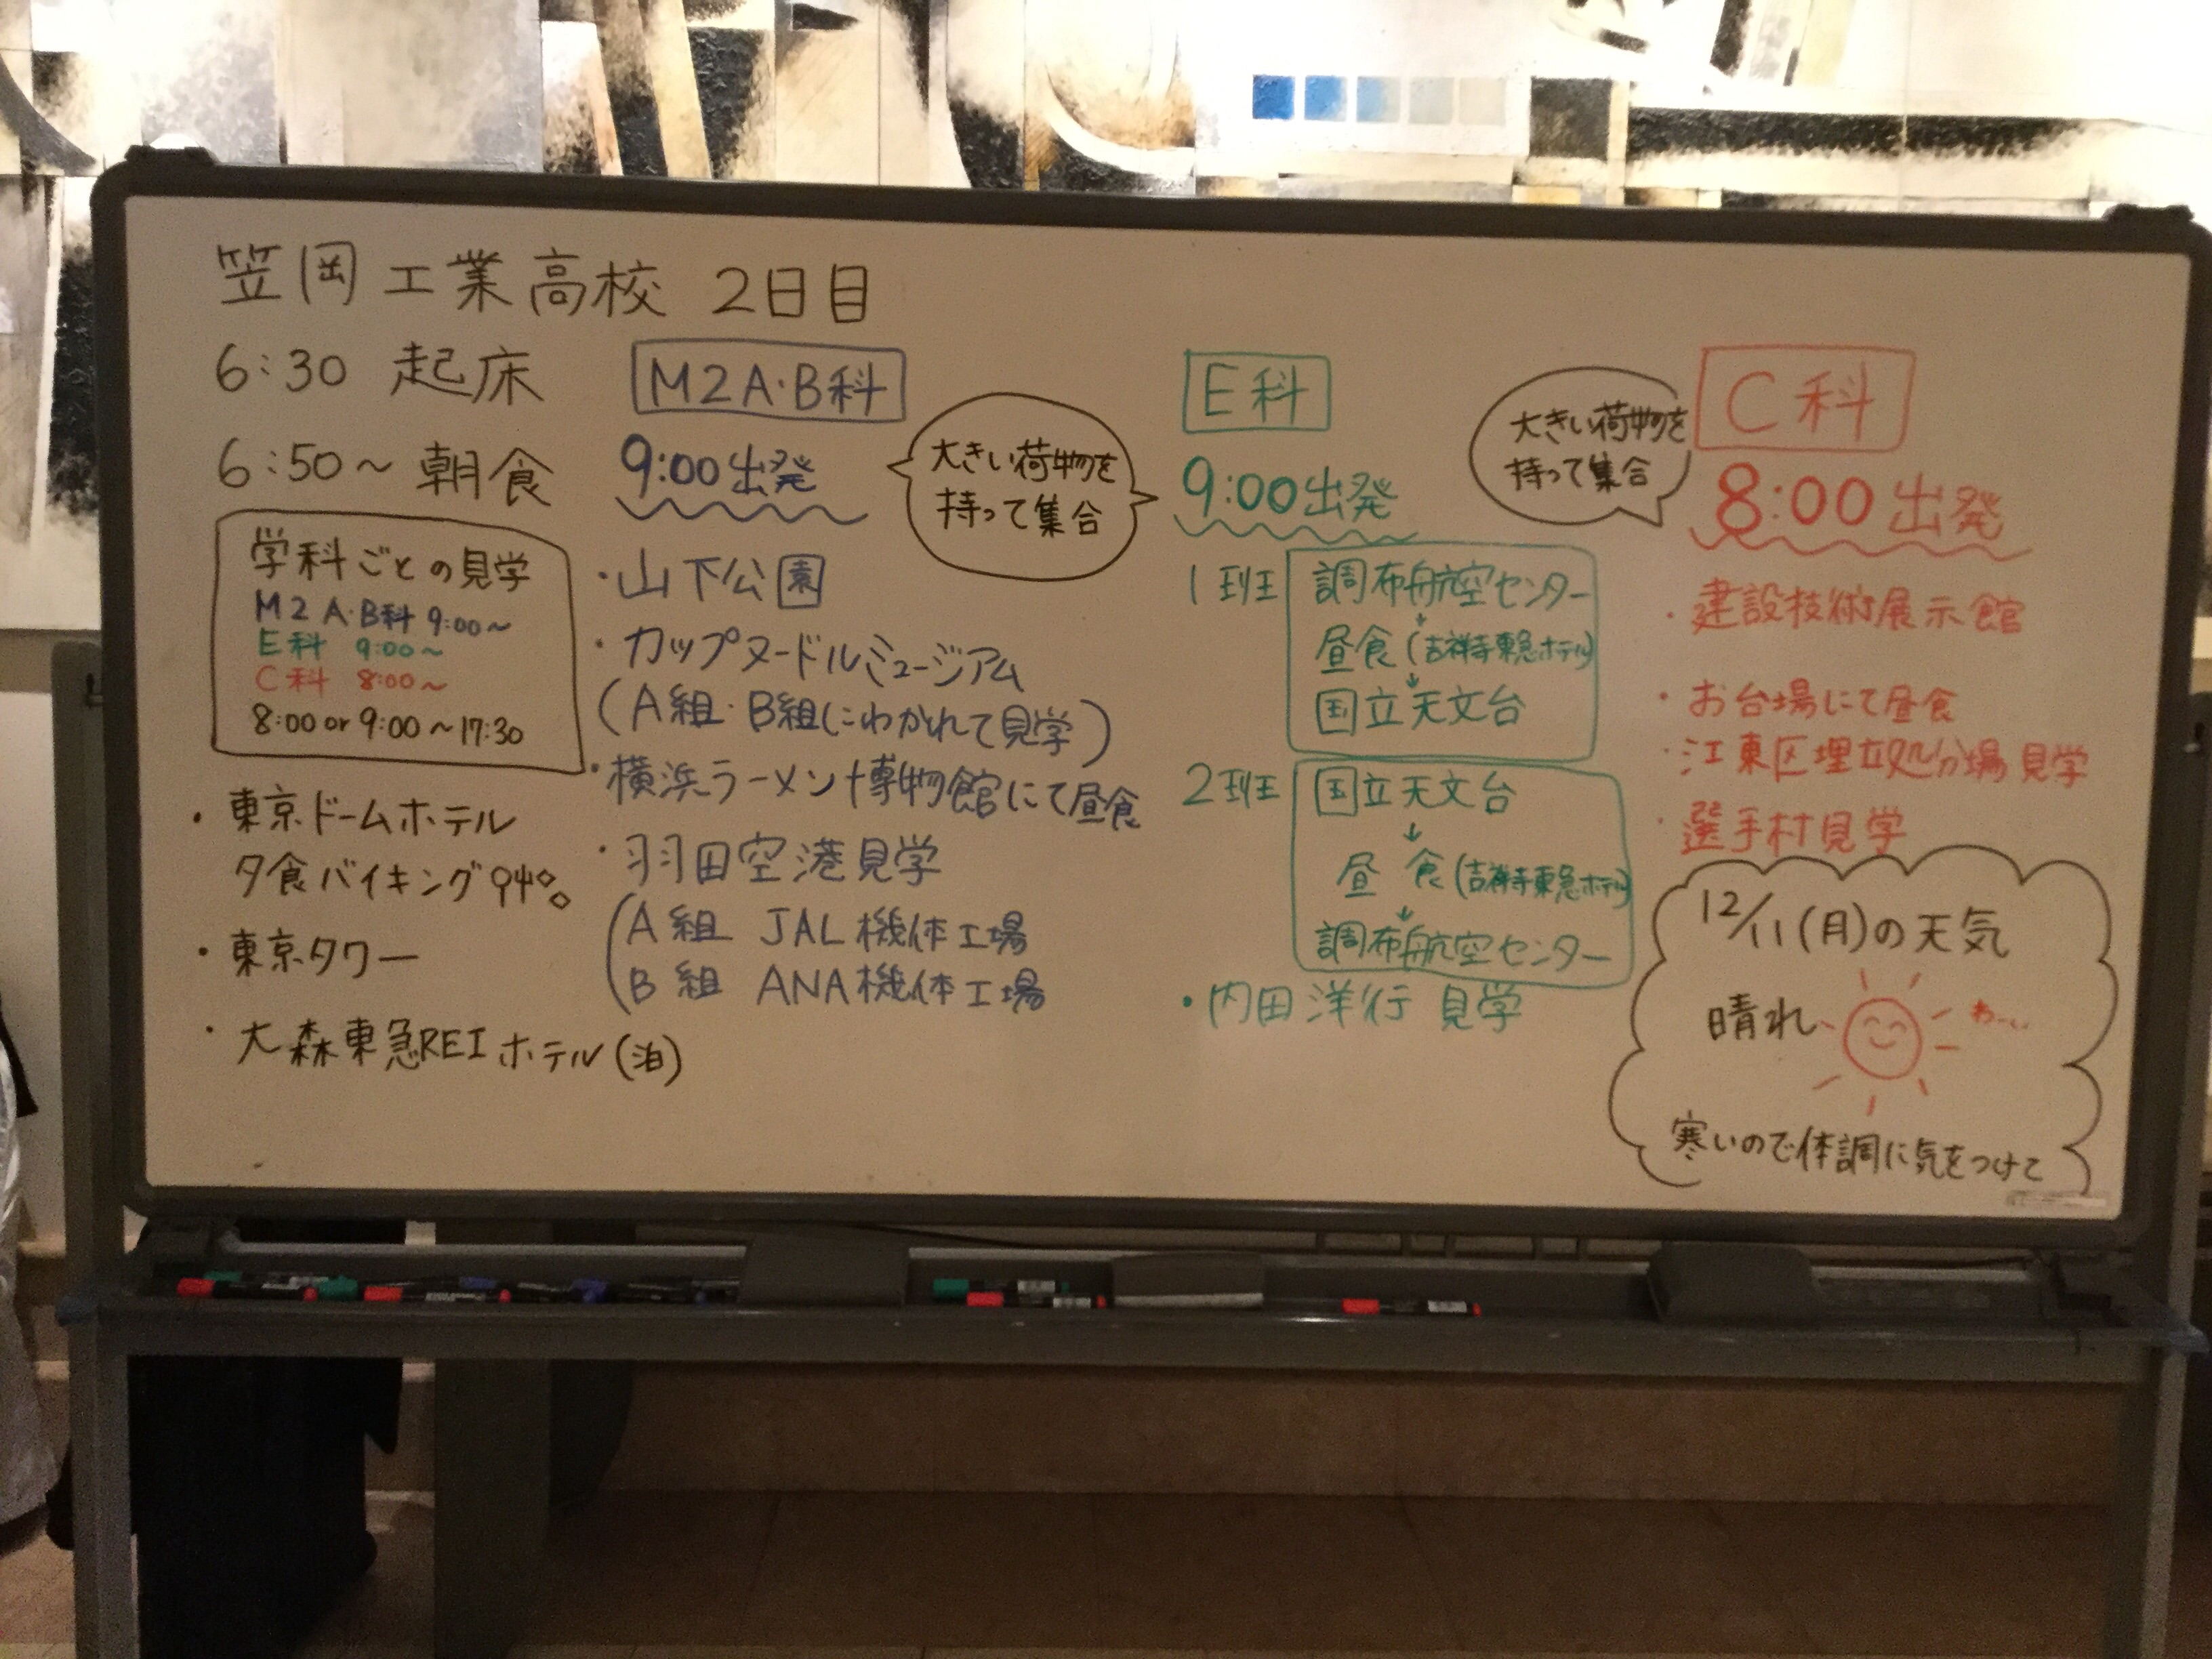 笠岡工業高校 2日目
6:30 起床
6:50～朝食
学科ごとの見学
M2A・B科 9:00～
E科 9:00～
C科 8:00～
8:00 or 9:00～17:30
・東京ドームホテル
夕食バイキング
・東京タワー
・大森東急REIホテル(泊)
M2A・B科
9:00出発
大きい荷物を
持って集合
・山下公園
・カップヌードルミュージアム
(A組・B組にわかれて見学)
・横浜ラーメン博物館にて昼食
・羽田空港見学
A組 JAL機体工場
B組 ANA機体工場
E科
9:00出発
1班 調布航空センター
↓
昼食(吉祥寺東急ホテル)
↓
国立天文台
2班 国立天文台
↓
昼食(吉祥寺東急ホテル)
↓
調布航空センター
・内田洋行 見学
大きい荷物を
持って集合
C科
8:00出発
・建設技術展示館
・お台場にて昼食
・江東区埋立処分場見学
・選手村見学
12/11(月)の天気
晴れ わーい
寒いので体調に気をつけて